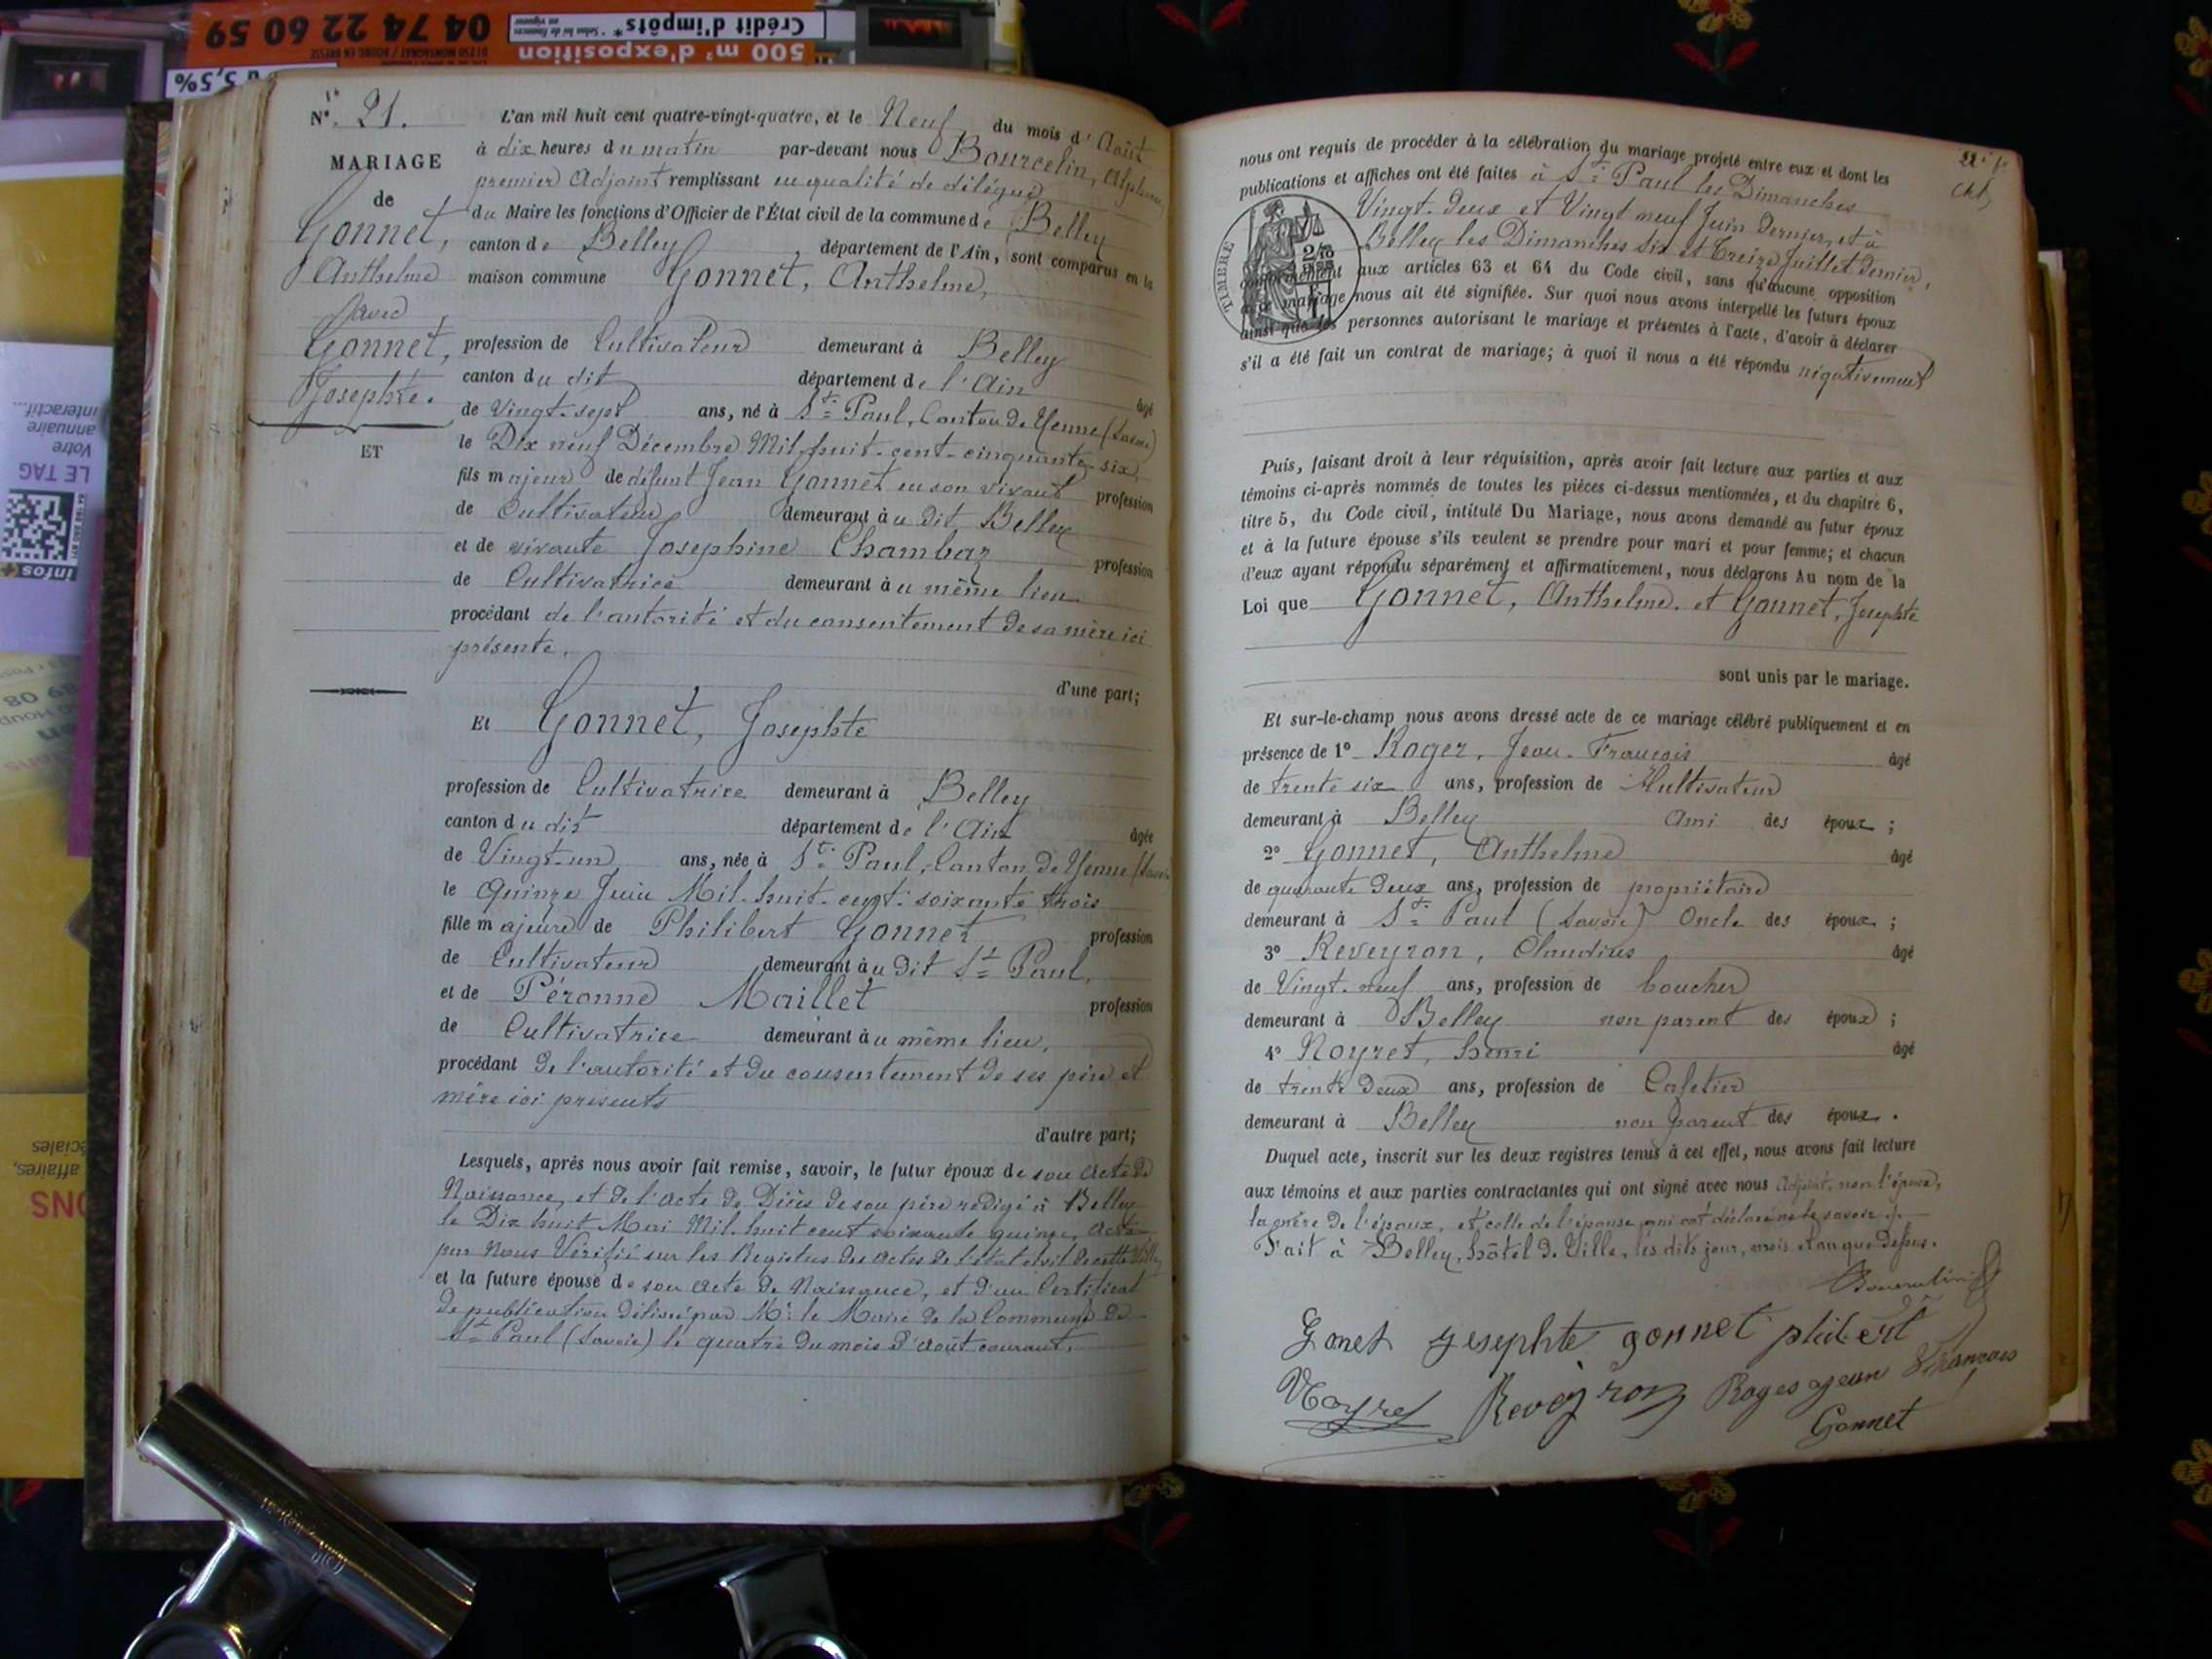 04 74 22 60 59
01250 MONTAGNAT / BOURG EN BRESSE
Crédit d'impôts*
* Selon loi de finances en vigueur
500 m² d'exposition
5,5%
interactif...
annuaire
Votre
LE TAG
infos+
affaires,
N° 21.
MARIAGE
de
Gonnet,
Anthelme
avec
Gonnet,
Josephte.
ET
L'an mil huit cent quatre-vingt-quatre, et le Neuf du mois d'Août
à dix heures du matin par-devant nous Bourcelin, Alphonse
premier Adjoint remplissant en qualité de délégué
du Maire les fonctions d'Officier de l'État civil de la commune de Belley
canton de Belley, département de l'Ain, sont comparus en la
maison commune Gonnet, Anthelme,
profession de Cultivateur demeurant à Belley
canton du dit département de l'Ain âgé
de Vingt-sept ans, né à St Paul, Canton de Yenne (Savoie)
le Dix neuf Décembre Mil huit-cent-cinquante-six,
fils majeur de défunt Jean Gonnet en son vivant profession
de Cultivateur demeurant au dit Belley
et de vivante Josephine Chambaz profession
de Cultivatrice demeurant au même lieu
procédant de l'autorité et du consentement de sa mère ici
présente.
d'une part;
Et Gonnet, Josephte
profession de Cultivatrice demeurant à Belley
canton du dit département de l'Ain âgée
de Vingt-un ans, née à St Paul, Canton de Yenne (Savoie)
le Quinze Juin Mil-huit-cent-soixante trois
fille majeure de Philibert Gonnet profession
de Cultivateur demeurant au dit St Paul,
et de Péronne Maillet profession
de Cultivatrice demeurant au même lieu,
procédant de l'autorité et du consentement de ses père et
mère ici présents
d'autre part;
Lesquels, après nous avoir fait remise, savoir, le futur époux de son acte de
Naissance, et de l'acte de Décès de son père rédigé à Belley
le Dix huit Mai Mil huit cent soixante quinze, acte
par Nous Vérifié sur les Registres des actes de l'état civil de cette Ville,
et la future épouse de son acte de Naissance, et d'un Certificat
de publication délivré par Mr le Maire de la Commune de
St Paul (Savoie) le quatre du mois d'août courant.
nous ont requis de procéder à la célébration du mariage projeté entre eux et dont les
publications et affiches ont été faites à St Paul les Dimanches
Vingt-deux et Vingt neuf Juin dernier, et à
Belley les Dimanches Six et Treize Juillet dernier,
TIMBRE
conformément aux articles 63 et 64 du Code civil, sans qu'aucune opposition
à ce mariage nous ait été signifiée. Sur quoi nous avons interpellé les futurs époux
ainsi que les personnes autorisant le mariage et présentes à l'acte, d'avoir à déclarer
s'il a été fait un contrat de mariage; à quoi il nous a été répondu négativement
Puis, faisant droit à leur réquisition, après avoir fait lecture aux parties et aux
témoins ci-après nommés de toutes les pièces ci-dessus mentionnées, et du chapitre 6,
titre 5, du Code civil, intitulé Du Mariage, nous avons demandé au futur époux
et à la future épouse s'ils veulent se prendre pour mari et pour femme; et chacun
d'eux ayant répondu séparément et affirmativement, nous déclarons Au nom de la
Loi que Gonnet, Anthelme. et Gonnet, Josephte
sont unis par le mariage.
Et sur-le-champ nous avons dressé acte de ce mariage célébré publiquement et en
présence de 1° Roger, Jean-François âgé
de trente six ans, profession de Cultivateur
demeurant à Belley Ami des époux;
2° Gonnet, Anthelme âgé
de quarante deux ans, profession de propriétaire
demeurant à St Paul (Savoie) Oncle des époux;
3° Reveyron, Claudius âgé
de Vingt-neuf ans, profession de boucher
demeurant à Belley non parent des époux;
4° Noyret, henri âgé
de trente deux ans, profession de Cafetier
demeurant à Belley non parent des époux.
Duquel acte, inscrit sur les deux registres tenus à cet effet, nous avons fait lecture
aux témoins et aux parties contractantes qui ont signé avec nous Adjoint, non l'époux,
la mère de l'époux, et celle de l'épouse qui ont déclaré ne le savoir.
Fait à Belley, hôtel de Ville, les dits jour, mois et an que dessus.
Bourcelin
Gonet josephte gonnet philbert
Noyret Reveyron Roger jean François
Gonnet